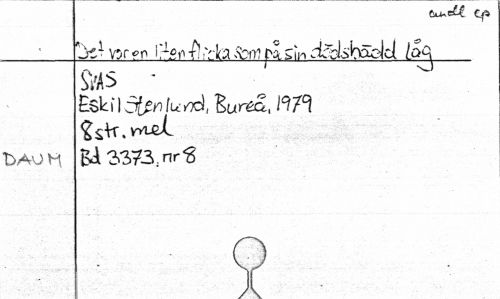 andl cp
Det var en liten flicka som på sin dödsbädd låg
SVAS
Eskil Stenlund, Bureå, 1979
8 str. mel
DAUM Bd 3373, nr 8